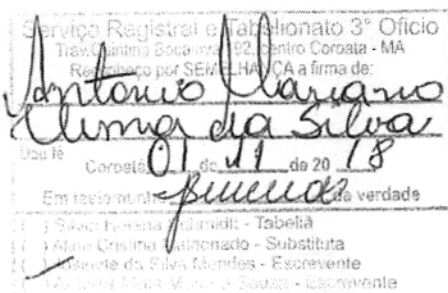 Serviço Registral e Tabelionato 3° Ofício
Trav. Quintino Bocaiuva 192, centro Coroatá - MA
Reconheço por SEMELHANÇA a firma de:
Antonio Mariano
Lima da Silva
Dou fé
Coroatá, 01 de 11 de 20 18
Em testemunho da verdade
( ) Silvio Schmidt - Tabeliã
( ) Aline Cristina Maldonado - Substituta
( ) da Silva Mendes - Escrevente
( ) Souza - Escrevente